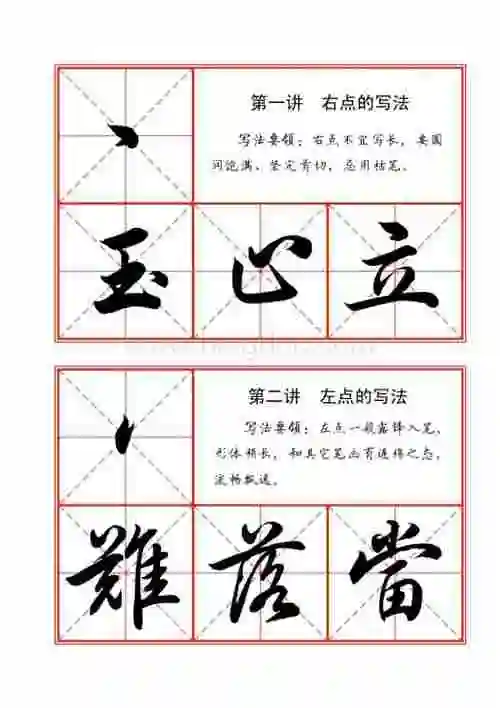 第一讲 右点的写法
写法要领：右点不宜写长，要圆
润饱满、坚定肯切，忌用枯笔。
玉 心 立
第二讲 左点的写法
写法要领：左点一般露锋入笔，
形体稍长，和其它笔画有连绵之态，
流畅飘逸。
難 落 當